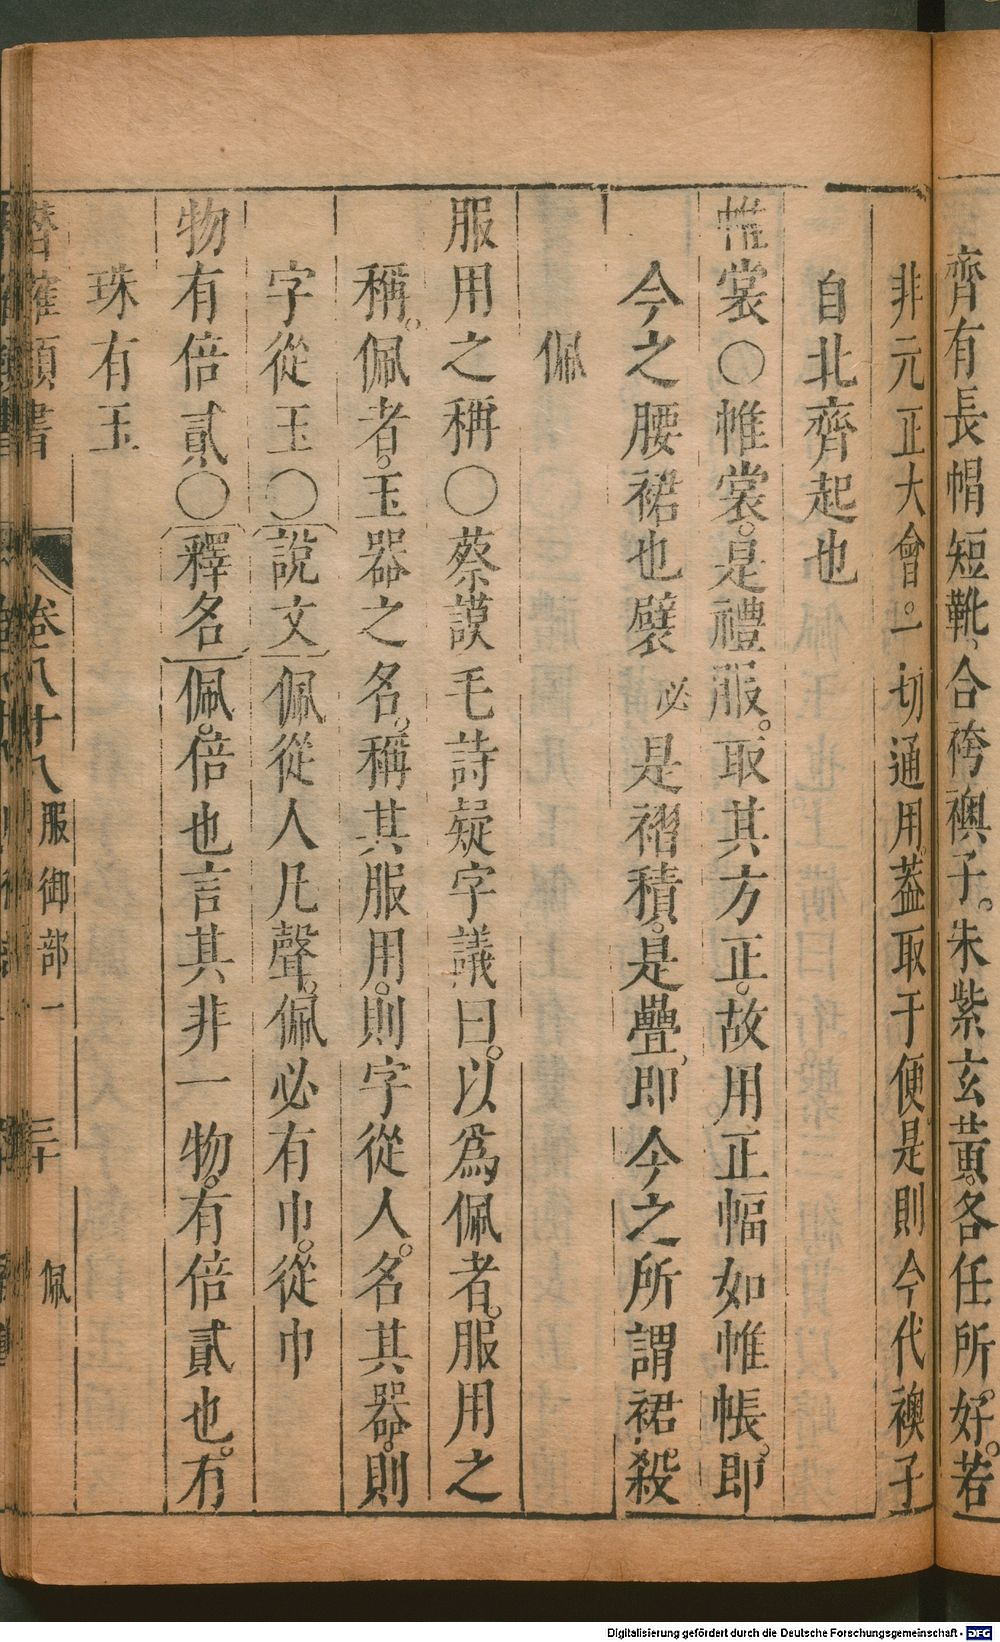 齊有長帽短靴、合袴襖子。朱紫玄黃。各任所。好。若
非元正大會。一切通用。葢取于便是則今代襖子
自北齊起也
帷裳○帷裳。是禮服。取其方正。故用正幅如帷帳。即
今之腰裙也襞必是褶積。是疊、即今之所謂裙。殺
佩
服用之稱○蔡謨毛詩疑字議曰。以為佩者。服用之
稱。佩者。玉器之名。稱其服用。則字從人。名其器。則
字從玉○說文佩從人凡聲。佩必有巾。從巾
物有倍貳○釋名佩。倍也言其非一物。有倍貳也。有
珠有玉
潛確類書
卷八十八
服御部一
三十
佩
Digitalisierung gefördert durch die Deutsche Forschungsgemeinschaft - DFG